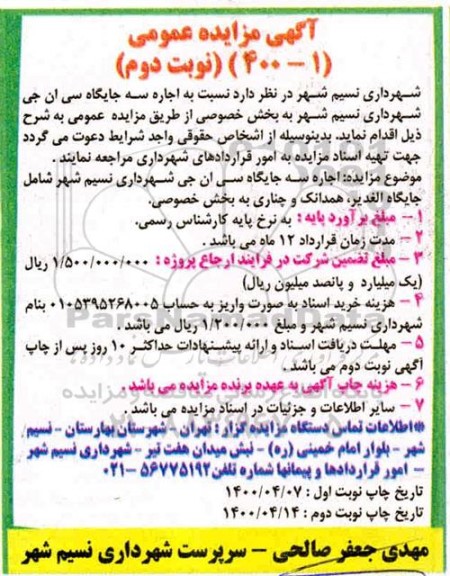 آگهی مزایده عمومی
(۱ – ۴۰۰) (نوبت دوم)
شـهرداری نسیم شـهر در نظر دارد نسبت به اجاره سـه جایگاه سی ان جی
شـهرداری نسیم شـهر به بخش خصوصی از طریق مزایده عمومی به شرح
ذیل اقدام نماید. بدینوسیله از اشخاص حقوقی واجد شرایط دعوت می گردد
جهت تهیه اسناد مزایده به امور قراردادهای شهرداری مراجعه نمایند .
موضوع مزایده: اجاره سـه جایگاه سـی ان جی شـهرداری نسیم شهر شامل
جایگاه الغدیر، همدانک و چناری به بخش خصوصی.
۱ – مبلغ برآورد پایه : به نرخ پایه کارشناس رسمی.
۲ – مدت زمان قرارداد ۱۲ ماه می باشد .
۳ – مبلغ تضمین شرکت در فرایند ارجاع پروژه : ۱/۵۰۰/۰۰۰/۰۰۰ ریال
(یک میلیارد و پانصد میلیون ریال)
۴ – هزینه خرید اسناد به صورت واریز به حساب ۰۱۰۵۳۹۵۲۶۸۰۰۵ بنام
شهرداری نسیم شهر و مبلغ ۱/۲۰۰/۰۰۰ ریال می باشد .
۵ – مهلـت دریافت اسـناد و ارائه پیشـنهادات حداکثـر ۱۰ روز پس از چاپ
آگهی نوبت دوم می باشد .
۶ – هزینه چاپ آگهی به عهده برنده مزایده می باشد .
۷ – سایر اطلاعات و جزئیات در اسناد مزایده می باشد .
*اطلاعات تماس دستگاه مزایده گزار : تهران – شهرستان بهارستان – نسیم
شهر – بلوار امام خمینی (ره) – نبش میدان هفت تیر – شهرداری نسیم شهر
– امور قراردادها و پیمانها شماره تلفن ۵۶۷۷۵۱۹۲–۰۲۱
تاریخ چاپ نوبت اول : ۱۴۰۰/۰۴/۰۷
تاریخ چاپ نوبت دوم : ۱۴۰۰/۰۴/۱۴
مهدی جعفر صالحی – سرپرست شهرداری نسیم شهر